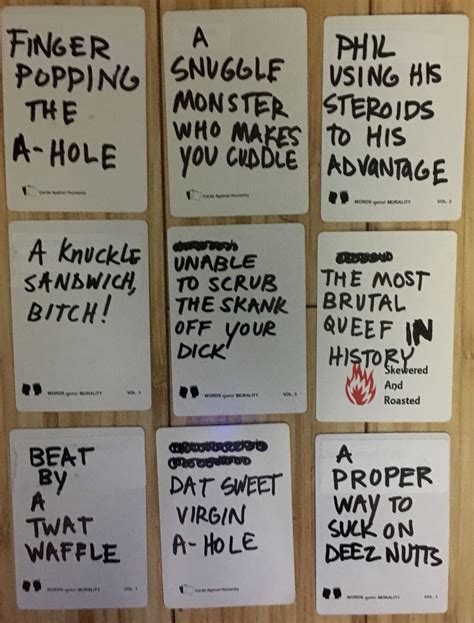 FINGER
POPPING
THE
A-HOLE
Cards Against Humanity
A
SNUGGLE
MONSTER
WHO MAKES
YOU CUDDLE
Cards Against Humanity
PHIL
USING HIS
STEROIDS
TO HIS
ADVANTAGE
WORDS against MORALITY VOL. 3
A KNUCKLE
SANDWICH,
BITCH!
WORDS against MORALITY VOL. 1
UNABLE
TO SCRUB
THE SKANK
OFF YOUR
DICK
WORDS against MORALITY VOL. 3
THE MOST
BRUTAL
QUEEF IN
HISTORY
Skewered
And
Roasted
BEAT
BY
A
TWAT
WAFFLE
WORDS against MORALITY VOL. 1
DAT SWEET
VIRGIN
A-HOLE
Cards Against Humanity
A
PROPER
WAY TO
SUCK ON
DEEZ NUTTS
WORDS against MORALITY VOL. 1